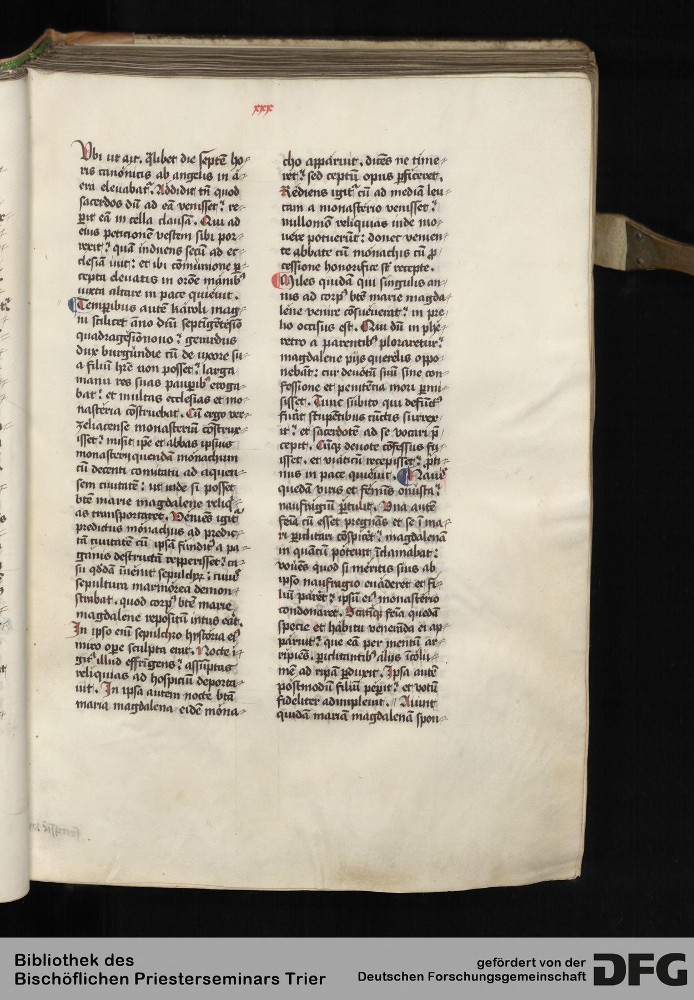 xxx
Vbi ut ait. Q̄libet die septē ho⸗
ris canonicis ab angelis in a⸗
era eleuabatʳ. Addidit tn̄ quod
sacerdos dū ad eā venisset: re⸗
ꝑit eā in cella clausā. Qui ad
eius peticionem vestem sibi por⸗
rexit: quā induens secū ad ec⸗
clesiā iuit: et ibi cōmunione ꝑ⸗
cepta eleuatis in orōe manibꝰ
iuxta altare in pace quieuit.
Temꝑibus autē karoli mag⸗
ni scilicet anno dn̄i septingētesīo
quadragesīonouo: gerardus
dux burgundie cū de uxore su⸗
a filiū hr̄e non posset: larga
manu res suas pauꝑibꝰ eroga⸗
bat: et multas ecclesias et mo⸗
nasteria cōstruebat. Cū ergo ver⸗
zeliacense monasteriū cōstrux⸗
isset: misit ip̄e et abbas ipsius
monasterij quendā monachum
cū decenti comitatu ad aquen⸗
sem ciuitatē: ut inde si posset
btē marie magdalene reliqꝰ⸗
as transportaret. Veniēs igitʳ
predictus monachus ad predic⸗
tā ciuitatē cū ipsā funditꝰ a pa⸗
ganis destructā repperisset: ca⸗
su qddā īuenit sepulchꝝ: cuiꝰ
sepultura marmorea demon⸗
strabat. quod corpꝰ btē marie
magdalene repositū intus eāt.
In ipso enī sepulchro hystoria eiꝰ
miro oꝑe sculpta erat. Nocte i⸗
gitʳ illud effrigens: assūptas
reliquias ad hospiciū deporta⸗
uit. In ipsa autem nocte btā
maria magdalena eidē mona⸗
cho apparuit. dicēs ne time⸗
ret: sed ceptū opus ꝑficeret.
Rediens igitʳ cū ad mediā leu⸗
cam a monasterio venisset:
nullomō reliquias inde mo⸗
uere potuerūt: donec venien⸗
te abbate cū monachis cū ꝓ⸗
cessione honorifice st̄ recepte.
Miles quidā qui singulis an⸗
nis ad corpꝰ btē marie magda⸗
lene venire cōsueuerat: in pre⸗
lio occisus est. Qui dū in phe⸗
retro a parentibꝰ ploraretur:
magdalene pijs querelis oppo⸗
nebāt: cur deuotū suū sine con⸗
fessione et penitētia mori ꝑmi⸗
sisset. Tunc subito qui defūctꝰ
fūat stupētibus cūctis surrex⸗
it: et sacerdotē ad se vocari p̄⸗
cepit. Cūqꝫ deuote cōfessus fu⸗
isset. et viaticū recepisset: ꝓti⸗
nus in pace quieuit. Nauis
quedā viris et femīs onusta:
naufragiū ꝑtulit. Vna autē
fēia cū esset pregnās et se ī ma⸗
ri ꝑiclitari cōspiceret: magdalenā
in quātū poterat īclamabat:
vouēs quod si meritis eius ab
ipso naufragio euaderet et fi⸗
liū pāret: ipsū eiꝰ monasterio
condonaret. Statīqꝫ fēia quedā
specie et habitu venerāda ei ap⸗
paruit: que eā per mentū ar⸗
ripiēs. ꝑiclitantibꝰ alijs īcolu⸗
mē ad ripā ꝑduxit. Ipsa autē
postmodū filiū peꝑit: et votū
fideliter adimpleuit. Aiunt
quidā mariā magdalenā spon⸗
Bibliothek des
Bischöflichen Priesterseminars Trier
gefördert von der
Deutschen Forschungsgemeinschaft
DFG